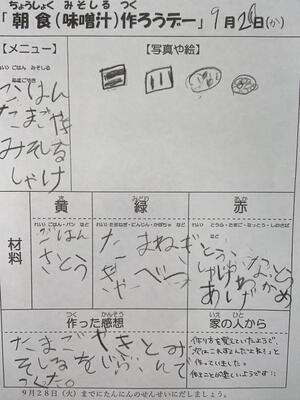 ちょうしょく みそしる つく
「朝食(味噌汁)作ろうデー」9月28日(か)
【メニュー】
れい ごはん みそしる
ごはん
たまごやき
みそしる
しゃけ
しゃしん え
【写真や絵】
材料
き
黄
れい ごはん・パン など
ごはん
さとう
みどり
緑
たまねぎ
きゃべつ
あか
赤
とうふ
なっとう
あげ
わかめ
つく かんそう
作った感想
たまごやきとみ
そしるをじぶんで
つくった。
いえ ひと
家の人から
作り方を覚えていたようで、
作っていました。
作ることが楽しいようです
9月28日(火)までにたんにんのせんせいにだしましょう。